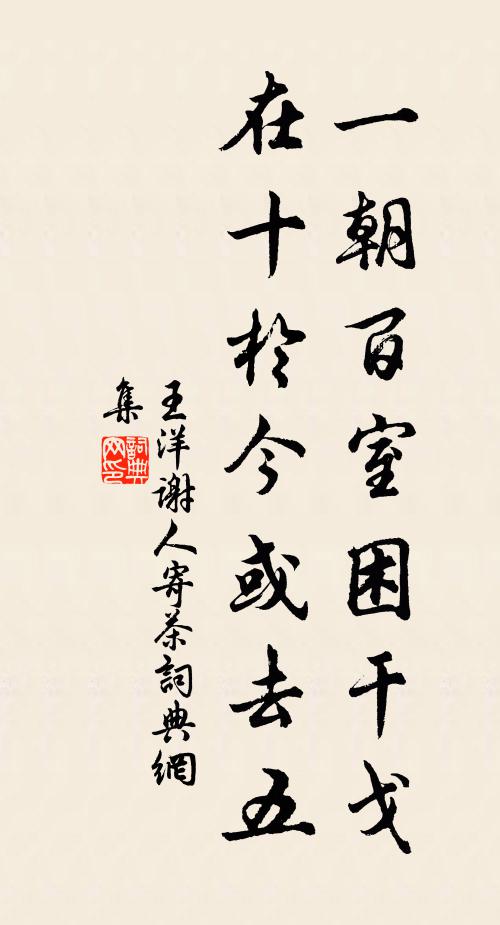 一朝百室困干戈
在十於今或去五
王洋謝人寄茶詞典網
集
詞典網印